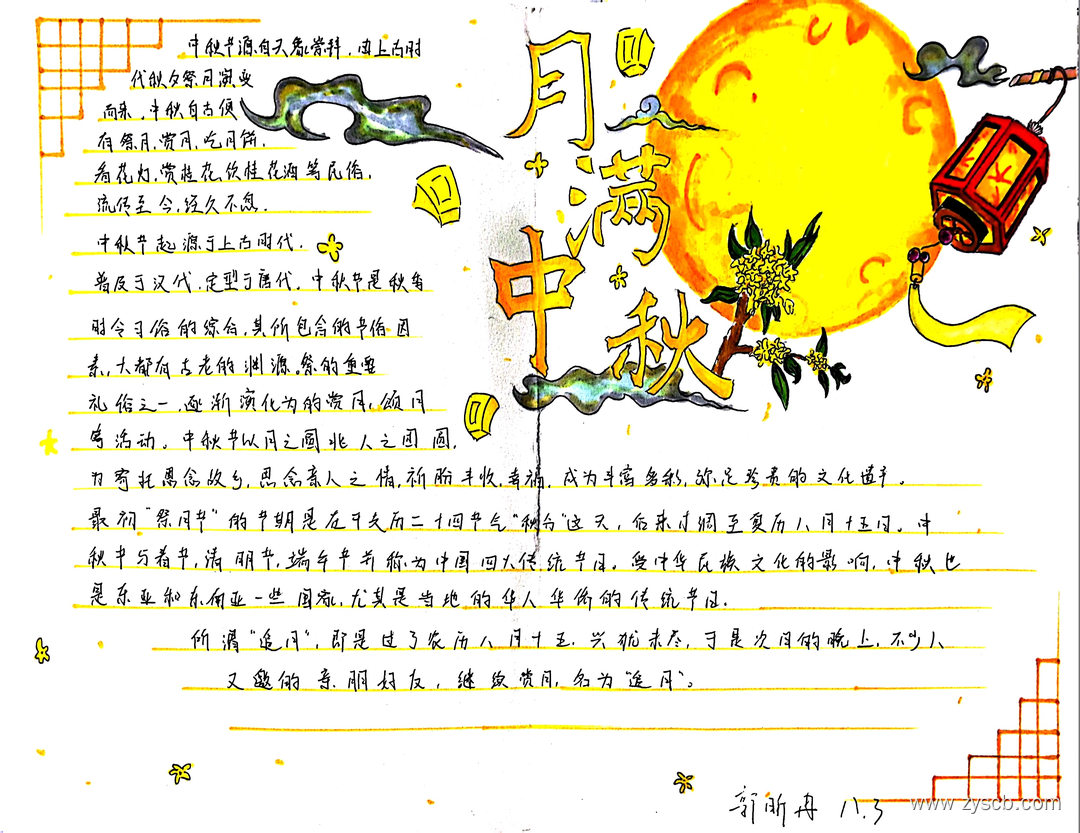 月满
中秋
中秋节源自天象崇拜，由上古时
代秋夕祭月演变
而来。中秋自古便
有祭月，赏月，吃月饼，
看花灯，赏桂花，饮桂花酒等民俗，
流传至今，经久不息。
中秋节起源于上古时代，
普及于汉代，定型于唐代。中秋节是秋季
时令习俗的综合，其所包含的节俗因
素，大都有古老的渊源。祭的重要
礼俗之一，逐渐演化为的赏月，颂月
等活动。中秋节以月之圆兆人之团圆，
为寄托思念故乡，思念亲人之情，祈盼丰收，幸福，成为丰富多彩，弥足珍贵的文化遗产。
最初“祭月节”的节期是在干支历二十四节气“秋分”这天，后来才调至夏历八月十五日。中
秋节与春节，清明节，端午节并称为中国四大传统节日。受中华民族文化的影响，中秋也
是东亚和东南亚一些国家，尤其是当地的华人华侨的传统节日。
所谓“追月”，即是过了农历八月十五，兴犹未尽，于是次日的晚上，不少人
又邀的亲朋好友，继续赏月，名为“追月”。
郭昕冉 八.3
www.zyscb.com